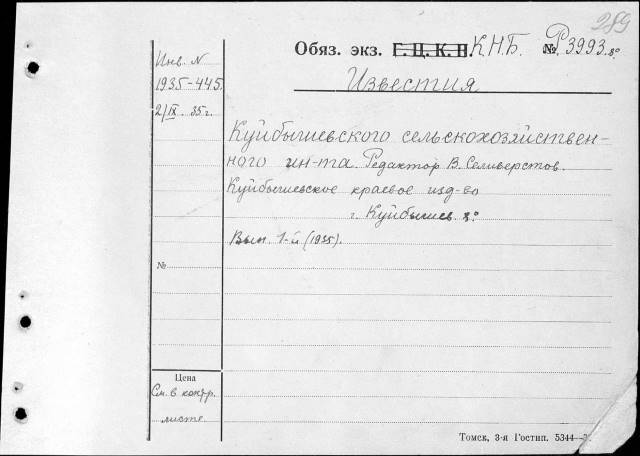 289
Обяз. экз. Г. Ц. К. Н. К.Н.Б. № Р3993.8º
Инв. N
1935-445.
2/IX. 35 г.
Известия
Куйбышевского сельскохозяйствен-
ного ин-та. Редактор В. Селиверстов.
Куйбышевское краевое изд-во
г. Куйбышев. 8º
Вып. 1-й (1935).
№
Цена
См. в контр.
листе.
Томск, 3-я Гостип. 5344—